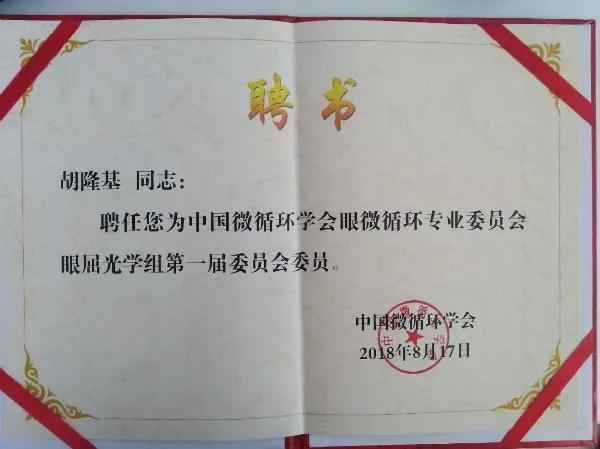 聘书
胡隆基 同志：
聘任您为中国微循环学会眼微循环专业委员会
眼屈光学组第一届委员会委员。
中国微循环学会
2018年8月17日